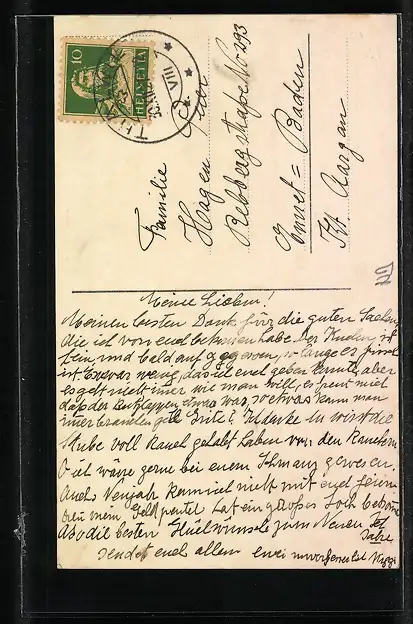 10
HELVETIA
VIII
Familie
Hagen
Rebbergstraße No 293
Ennet=Baden
Kt. Aargau
Meine Lieben!
Meinen besten Dank für die guten Sachen
die ich von euch bekommen habe. Der Kuchen ist
fein und bald auf gegessen, so lange er frisch
ist. Es war wenig, das ich euch geben konnte, aber
es geht nicht immer wie man will, es freut mich
daß der etwas war, so etwas kann man
immer brauchen gell Griti? Ich danke
Stube voll Rauch gehabt haben von den Rauchern
O ich wäre gerne bei eurem Schmaus gewesen.
Auchs Neujahr kann ich nicht mit euch feiern
den mein Geldbeutel hat ein großes Loch bekommen
Also die besten Glückwünsche zum Neuen
Jahre
sendet euch allen